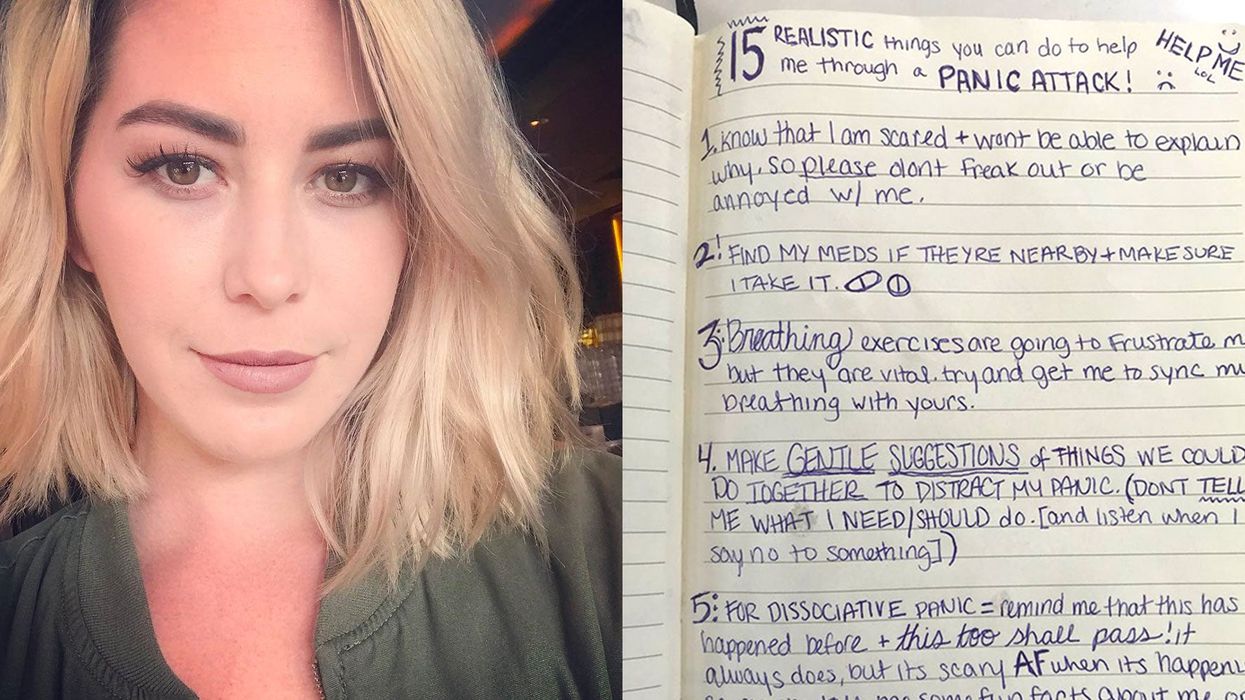 15 REALISTIC things you can do to help
me through a PANIC ATTACK!
HELP ME
LOL
1. know that I am scared + wont be able to explain
why, so please dont freak out or be
annoyed w/ me.
2! FIND MY MEDS IF THEYRE NEARBY + MAKE SURE
I TAKE IT.
3: Breathing exercises are going to frustrate m
but they are vital. try and get me to sync my
breathing with yours.
4. MAKE GENTLE SUGGESTIONS of THINGS WE COULD
DO TOGETHER TO DISTRACT MY PANIC. (DONT TELL
ME WHAT I NEED/SHOULD do. [and listen when I
say no to something])
5: FOR DISSOCIATIVE PANIC = remind me that this has
happened before + this too shall pass! it
always does, but its scary AF when its happeni
some fun facts about me